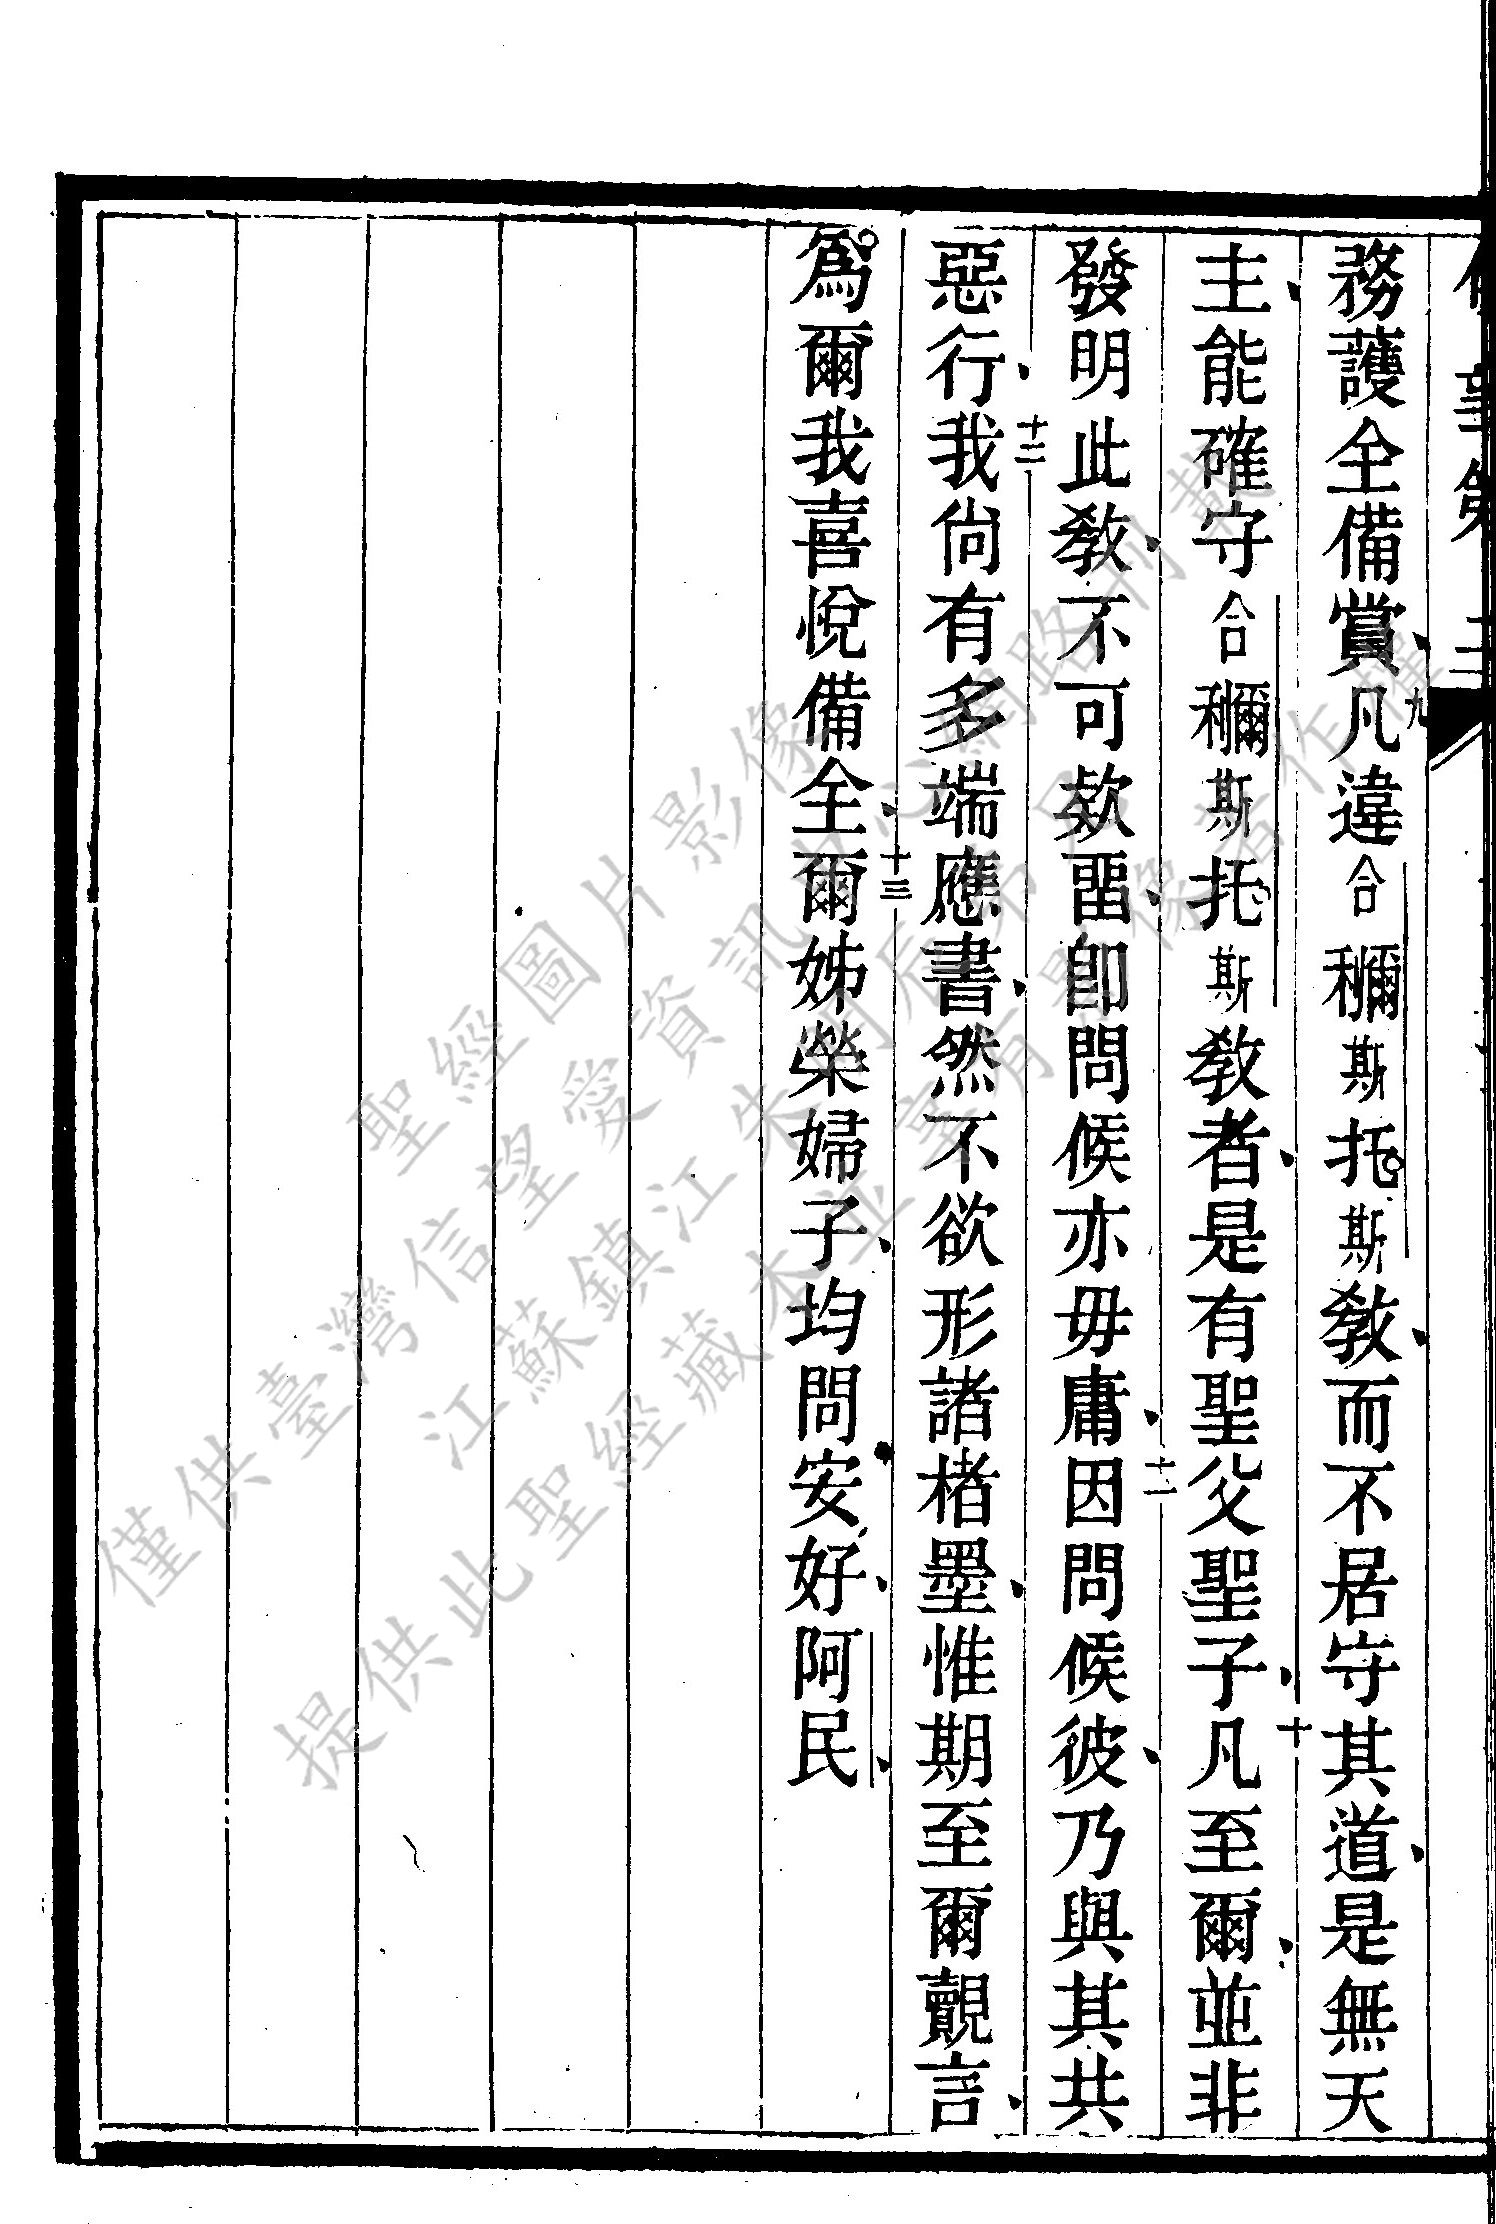 務護全備賞、九凡違合⿰利爾斯托斯教、而不居守其道、是無天
主、能確守合⿰利爾斯托斯教者、是有聖父聖子、十凡至爾、並非
發明此教、不可欵畱、卽問候亦毋庸、十一因問候彼、乃與其共
惡行、十二我尙有多端應書、然不欲形諸楮墨、惟期至爾覿言、
爲爾我喜悅備全、十三爾姊榮婦子、均問安好、阿民、
聖經圖片影像
僅供臺灣信望愛資訊中心網路刊載
江蘇鎮江朱明
提供此聖經藏本並享有影像著作權